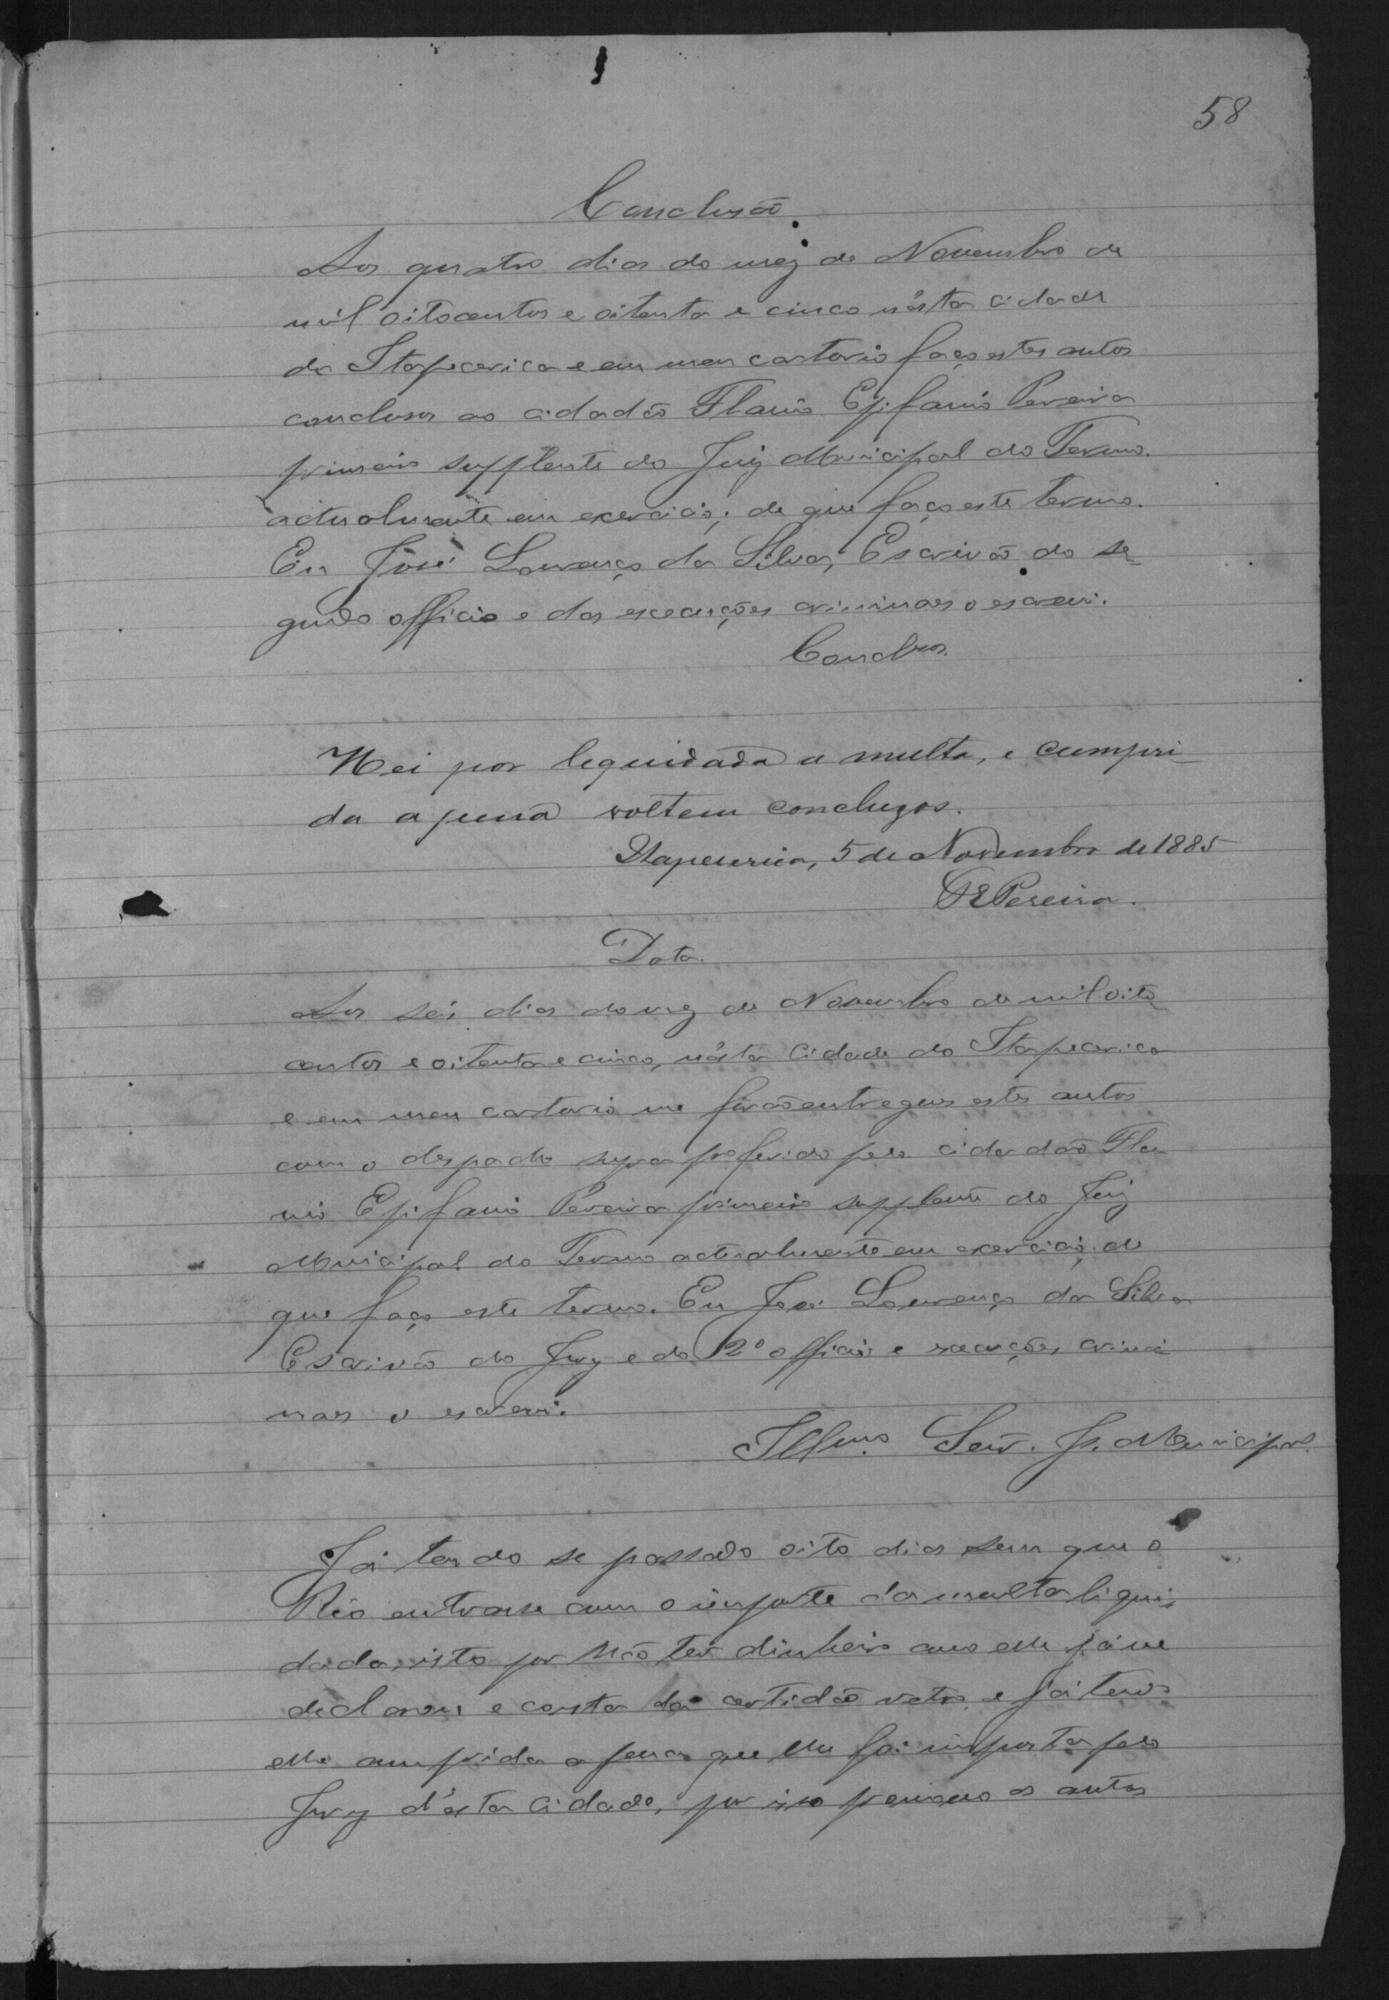 58
Conclusão.
Aos quatro dias do mez de Novembro de
mil oitocentos e oitenta e cinco n'ésta cidade
de Itapecerica e em meu cartorio faço estes autos
conclusos ao cidadão Flavio Epifanio Pereira
primeiro supplente do Juiz Municipal do Termo.
actualmente em exercicio; de que faço este termo.
Eu José Lourenço da Silva, Escrivão do se-
gundo officio e das execuções criminaes o escrevi.
Conclsos.
Hei por lequidada a multa, e cumpri-
da a pena voltem concluzos.
Itapecerica, 5 de Novembro de 1885
F E Pereira.
Data.
Aos seis dias do mez de Novembro de mil oito
centos e oitenta e cinco, n'ésta Cidade de Itapecerica
e em meu cartorio me forão entregues estes autos
com o despacho supra proferido pelo cidadão Fla
vio Epifanio Pereira primeiro supplente do Juiz
Municipal do Termo actualmente em exercicio; de
que faço este termo. Eu José Lourenço da Silva
Escrivão do Jury e do 2º officio e execuções crimi
naes o escrevi.
Illmo. Senr. Jz. Municipal.
Já tendo se passado oito dias sem que o
Réo entrasse com o importe da multa liqui-
dada, isto por não ter dinheiro como elle já me
declarou e consta da certidão retro, e já tendo
elle cumprida a pena que lhe foi imposta pelo
Jury d'ésta Cidade, por isso promovo os autos